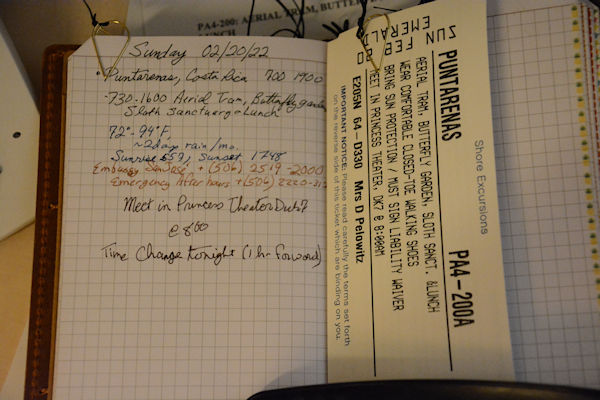 PA4-200: AERIAL TRAM, BUTTER
LUNCH
Sunday 02/20/22
• Puntarenas, Costa Rica 700 1900
-730-1600 Aerial Tram, Butterfly garden
Sloth Sanctuary - Lunch
72°-94°F,
~2 days rain/mo.
Sunrise 559, Sunset 1748
Embassy San Jose + (506) 2519-2000
Emergency After hours + (506) 2220-31
Meet in Princess Theater Deck 7
@ 800
Time Change tonight (1 hr forward)
EMERALD
SUN FEB 20
PUNTARENAS PA4-200A
Shore Excursions
AERIAL TRAM, BUTTERFLY GARDEN, SLOTH SANCT. &LUNCH
WEAR COMFORTABLE CLOSED-TOE WALKING SHOES
BRING SUN PROTECTION / MUST SIGN LIABILITY WAIVER
MEET IN PRINCESS THEATER, DK7 @ 8:00AM
E205N 64-D330 Mrs D Pelowitz
IMPORTANT NOTICE: Please read carefully the terms set forth
on the reverse side of this ticket which are binding on you.